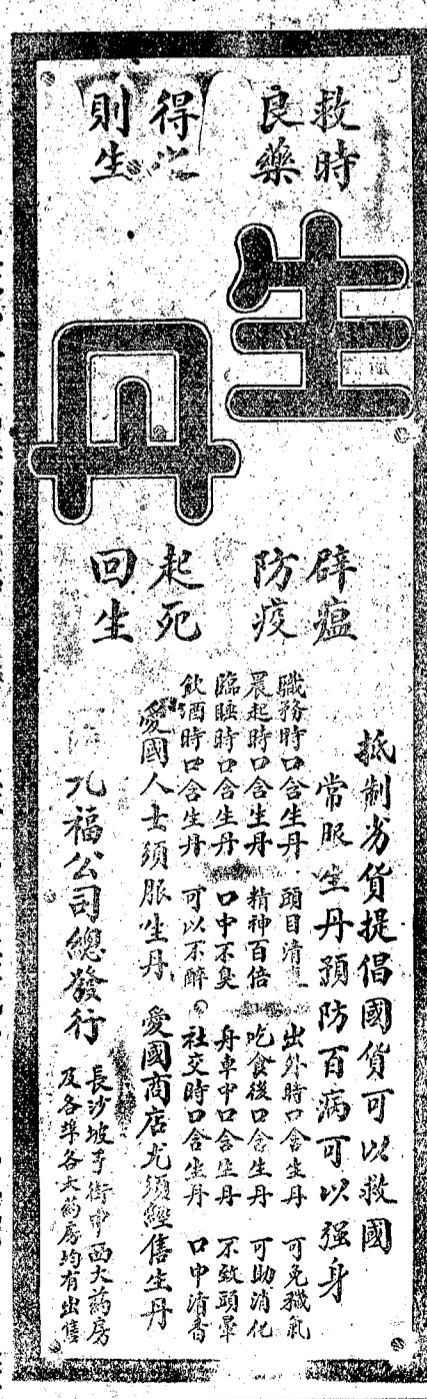 救時
良藥
得之
則生
生丹
辟瘟
防疫
起死
回生
抵制劣貨提倡國貨可以救國
常服生丹預防百病可以强身
職務時口含生丹 頭目清 出外時口含生丹 可免穢氣
晨起時口含生丹 精神百倍 吃食後口含生丹 可助消化
臨睡時口含生丹 口中不臭 舟車中口含生丹 不致頭暈
飲酒時口含生丹 可以不醉 社交時口含生丹 口中清香
愛國人士須服生丹 愛國商店尤須經售生丹
九福公司總發行
長沙坡子街中西大藥房
及各埠各大葯房均有出售